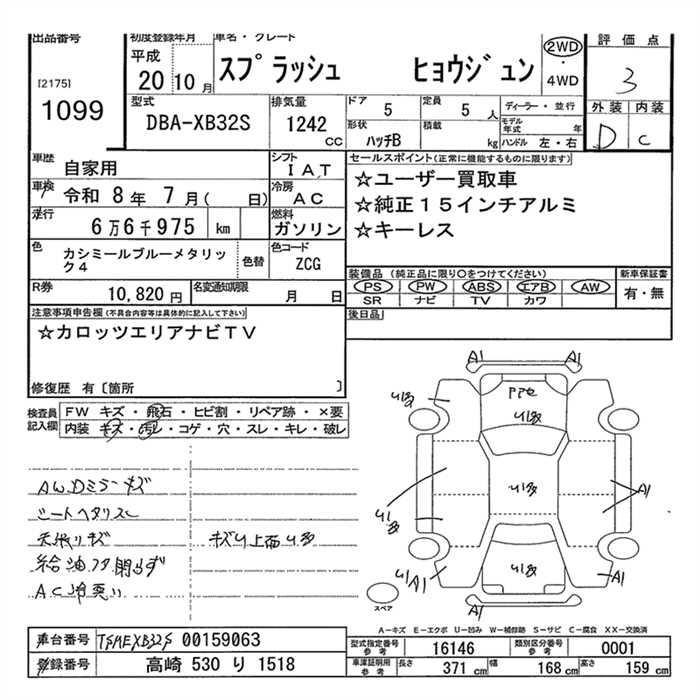 出品番号
[2175]
1099
初度登録年月
平成
20 10 月
車名・グレード
スプラッシュ ヒョウジュン
2WD
・
4WD
評価点
3
外装 内装
D C
型式
DBA-XB32S
排気量
1242
cc
ドア 5
定員 5 人
ディーラー・並行
形状 ハッチB
積載 kg
モデル年式 年
ハンドル 左・右
車歴 自家用
シフト
IAT
車検 令和 8年 7月( 日)
冷房
AC
走行 6万6千975 km
燃料
ガソリン
色 カシミールブルーメタリック4
色替
色コード
ZCG
R券 10,820 円
名変通知期限 月 日
セールスポイント(正常に機能するものに限ります)
☆ユーザー買取車
☆純正15インチアルミ
☆キーレス
装備品 (純正品に限り○をつけてください)
PS PW ABS エアB AW
SR ナビ TV カワ
新車保証書
有・無
後日品
注意事項申告欄(不具合内容等は具体的に記入して下さい)
☆カロッツエリアナビTV
修復歴 有〔箇所 〕
検査員記入欄
FW キズ・飛石・ヒビ割・リペア跡・×要
内装 キズ・汚レ・コゲ・穴・スレ・キレ・破レ
AW,Dミラーキズ
シートヘタリスレ
天張リキズ
キズU上面U多
給油フタ閉らず
A1 A1
U1多
U1多
U1多
U1多
A1
U1多
U1 A1
U1多
A1
A1
スペア
A－キズ E－エクボ U－凹み W－補修跡 S－サビ C－腐食 XX－交換済
車台番号 TSMEXB32S 00159063
登録番号 高崎 530 り 1518
型式指定番号
参考
16146
類別区分番号
参考
0001
車庫証明用
参考
長さ 371 cm
幅 168 cm
高さ 159 cm